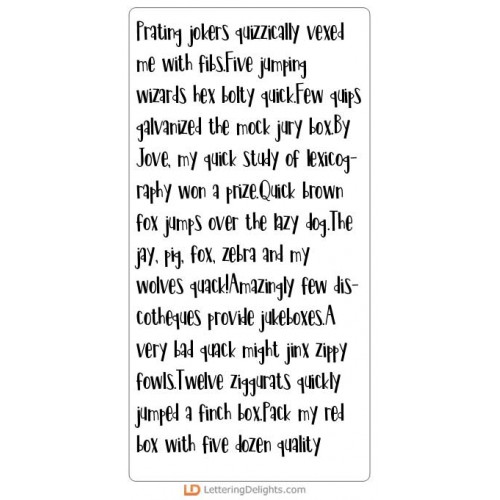 Prating jokers quizzically vexed
me with fibs.Five jumping
wizards hex bolty quick.Few quips
galvanized the mock jury box.By
Jove, my quick study of lexicog-
raphy won a prize.Quick brown
fox jumps over the lazy dog.The
jay, pig, fox, zebra and my
wolves quack!Amazingly few dis-
cotheques provide jukeboxes.A
very bad quack might jinx zippy
fowls.Twelve ziggurats quickly
jumped a finch box.Pack my red
box with five dozen quality
LD LetteringDelights.com